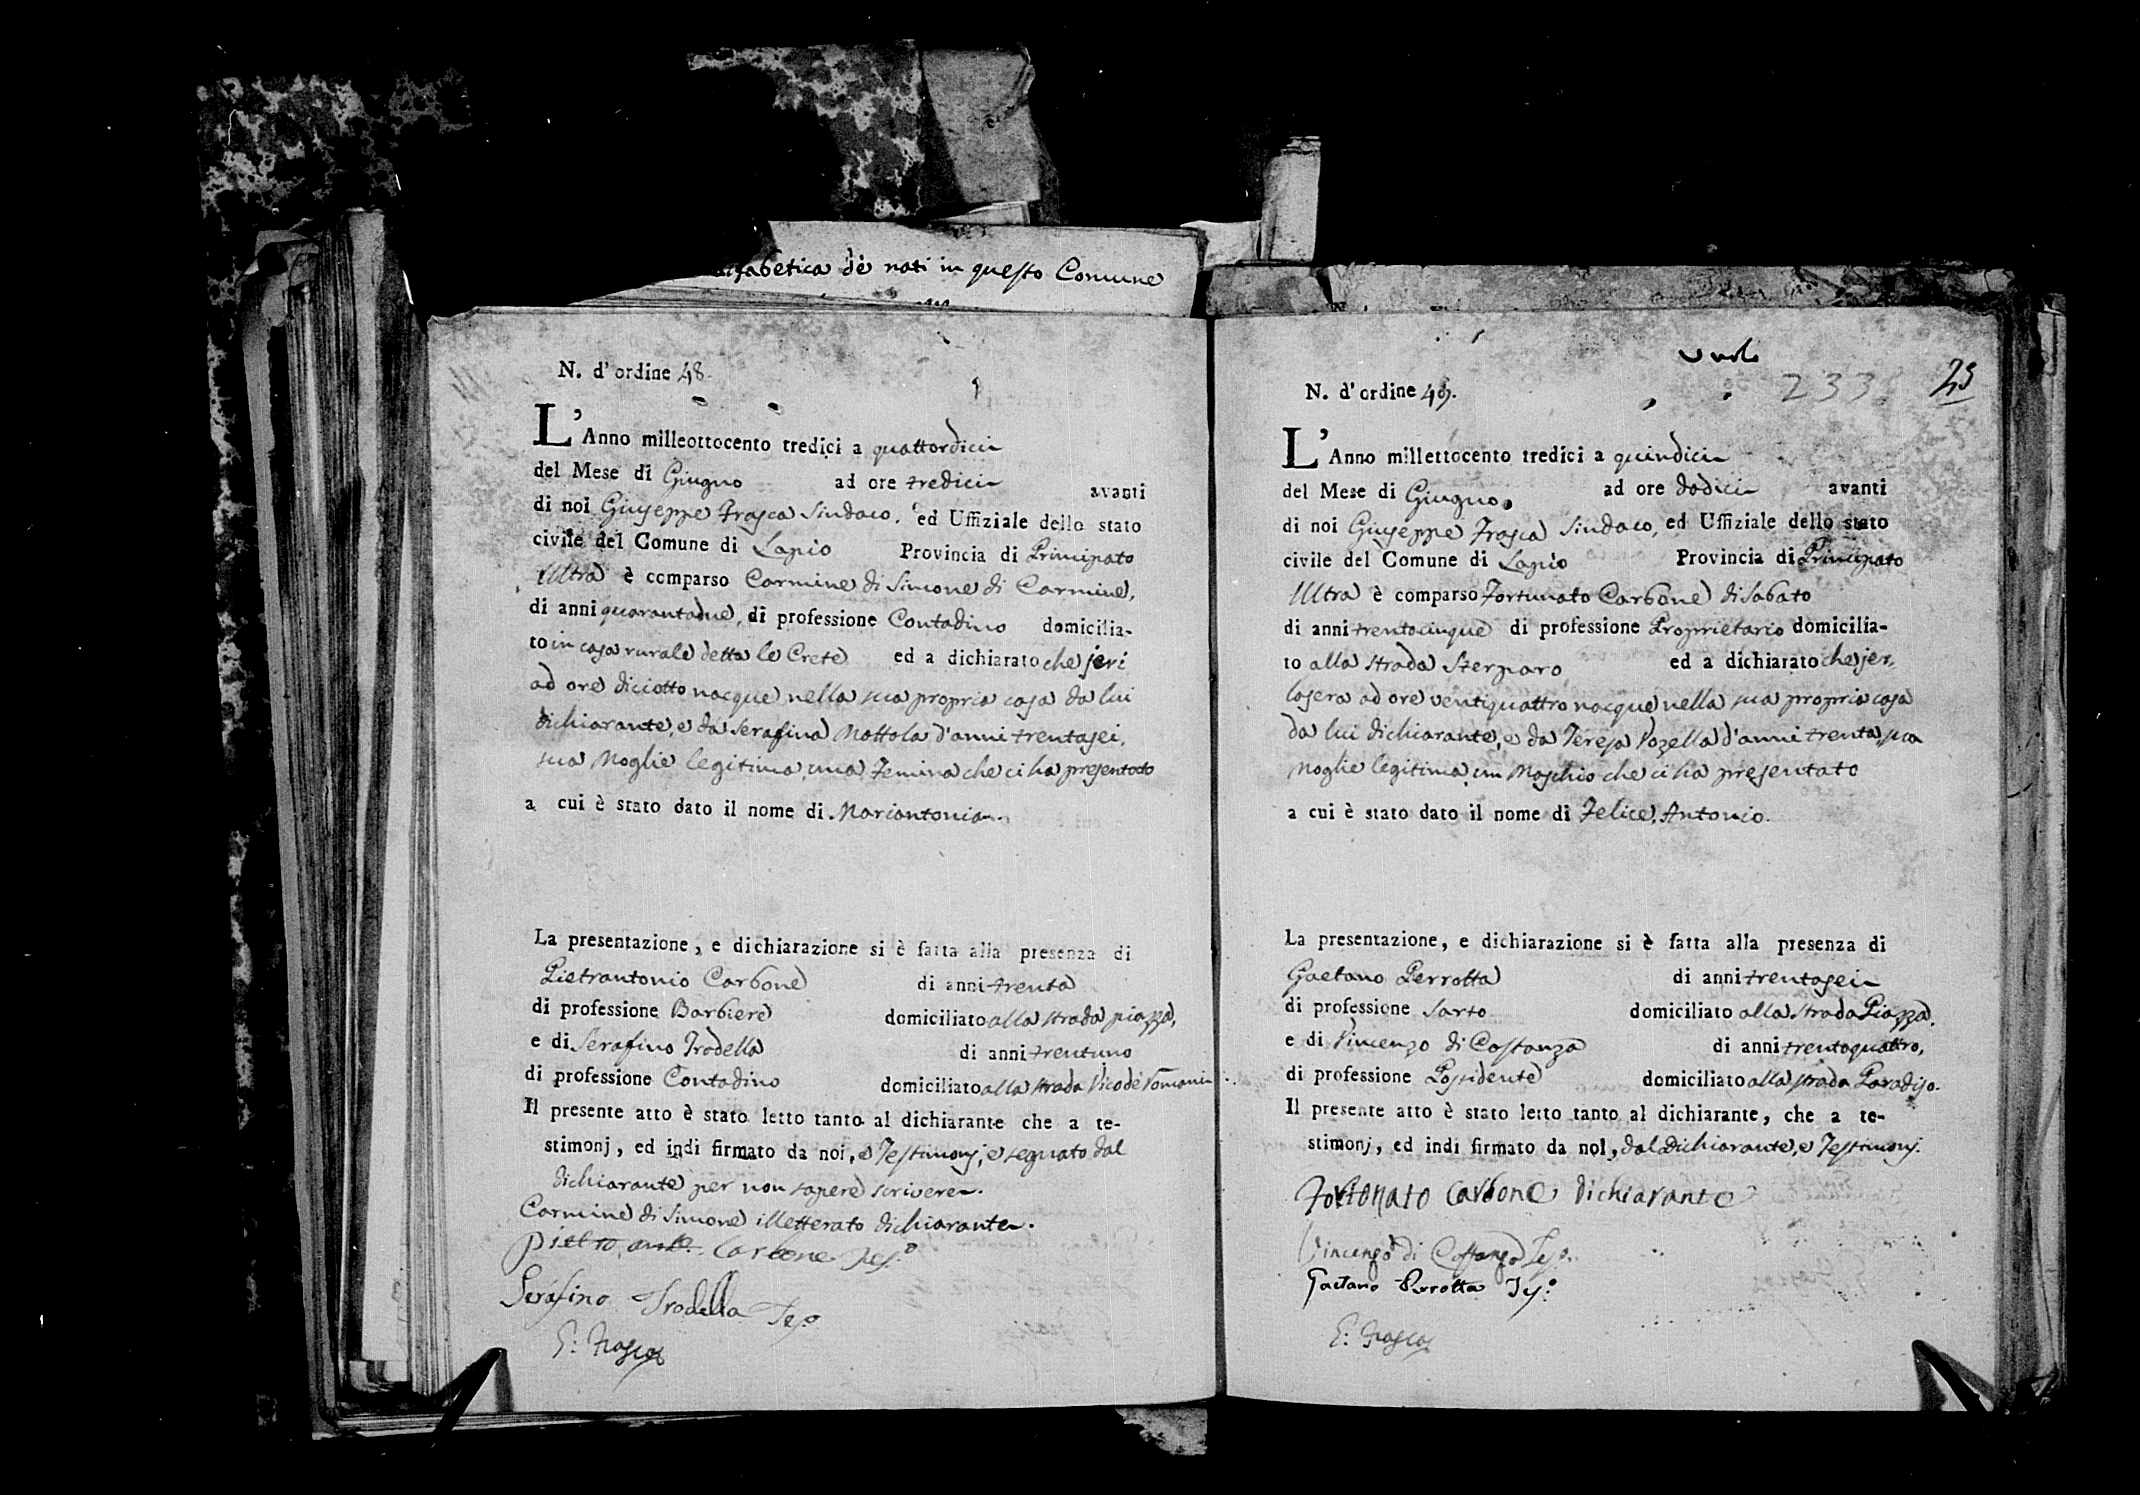 alfabetica de nati in questo Comune
N. d'ordine 48.
L'Anno milleottocento tredici a quattordici
del Mese di Giugno ad ore tredici avanti
di noi Giuseppe Frasca Sindaco, ed Uffiziale dello stato
civile del Comune di Lapio Provincia di Principato
Ultra è comparso Carmine di Simone di Carmine,
di anni quarantadue, di professione Contadino domicilia-
to in casa rurale detta le Crete ed a dichiarato che jeri
ad ore diciotto nacque nella sua propria casa da lui
dichiarante, e da Serafina Mottola d'anni trentasei,
sua Moglie legitima, una Femina che ci ha presentato
a cui è stato dato il nome di Mariantonia.
La presentazione, e dichiarazione si è fatta alla presenza di
Pietrantonio Carbone di anni trenta
di professione Barbiere domiciliato alla strada piazza,
e di Serafino Trodella di anni trentuno
di professione Contadino domiciliato alla strada Vico de
Il presente atto è stato letto tanto al dichiarante che a te-
stimonj, ed indi firmato da noi, e Testimonj, e segnato dal
dichiarante per non sapere scrivere.
Carmine di Simone illetterato dichiarante.
Pietro Carbone Tes.o
Serafino Trodella Tes.o
G: Frasca
233
25
N. d'ordine 49.
L'Anno millettocento tredici a quindici
del Mese di Giugno, ad ore dodici avanti
di noi Giuseppe Frasca Sindaco, ed Uffiziale dello stato
civile del Comune di Lapio Provincia di Principato
Ultra è comparso Fortunato Carbone di Sabato
di anni trentacinque di professione Proprietario domicilia-
to alla strada Sterparo ed a dichiarato che jer,
lasera ad ore ventiquattro nacque nella sua propria casa
da lui dichiarante, e da Teresa Pozella d'anni trenta, sua
Moglie legitima, un Maschio che ci ha presentato
a cui è stato dato il nome di Felice, Antonio.
La presentazione, e dichiarazione si è fatta alla presenza di
Gaetano Perrotta di anni trentasei
di professione Sarto domiciliato alla strada Piazza.
e di Vincenzo di Costanza di anni trentaquattro,
di professione Possidente domiciliato alla strada Paradiso.
Il presente atto è stato letto tanto al dichiarante, che a te-
stimonj, ed indi firmato da noi, dal Dichiarante, e Testimonj.
Fortonato Carbone Dichiarante
Vincenzo di Costanzo Tes.o
Gaetano Perrotta Tes.o
G: Frasca